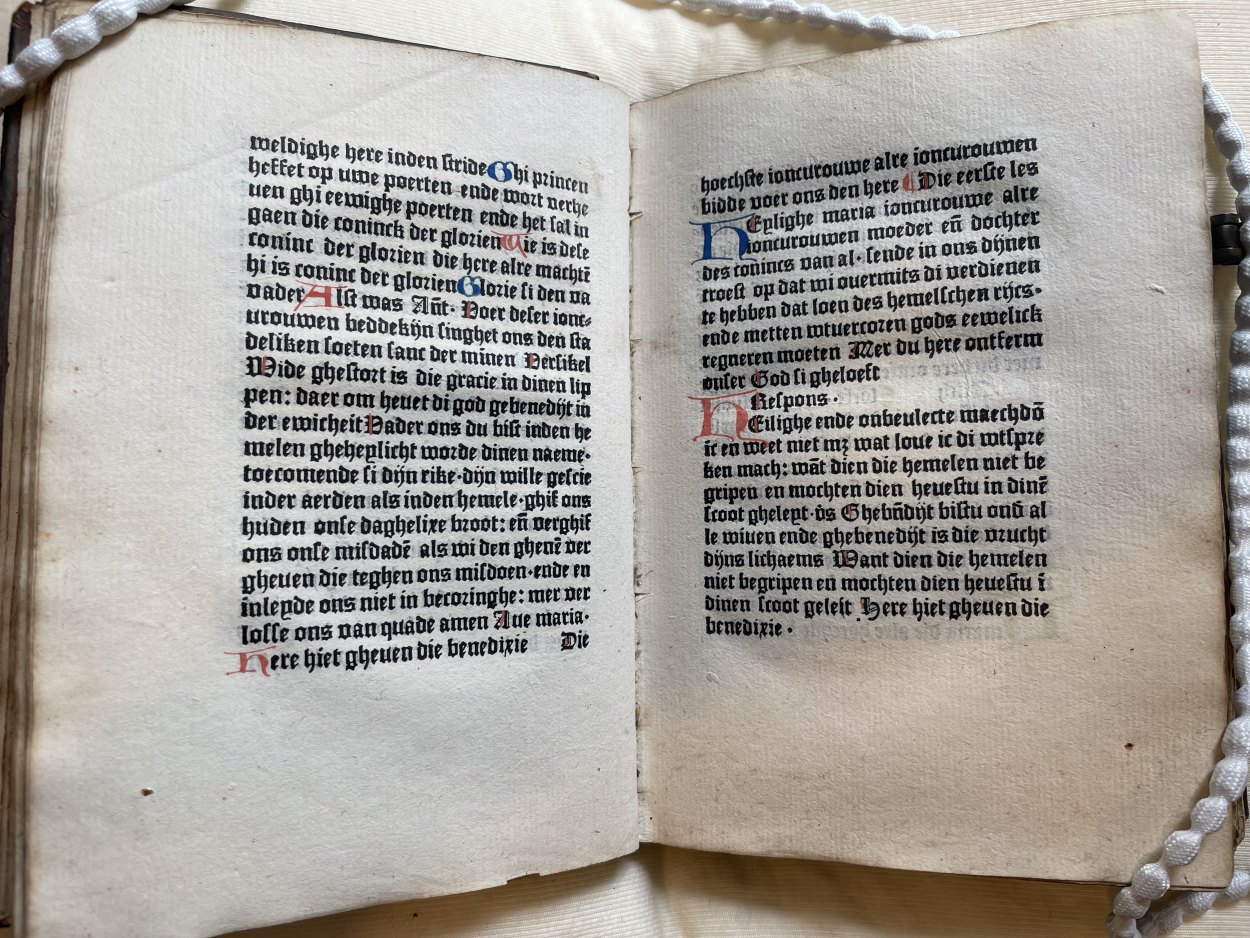 weldighe here inden stride Ghi princen
heffet op uwe poerten ende wort verhe
uen ghi eewighe poerten ende het sal in
gaen die coninck der glorien Wie is dese
coninc der glorien die here alre machtē
hi is coninc der glorien Glorie si den va
vader Alst was Añt· Voer deser ionc⸗
urouwen beddekijn singhet ons den sta
deliken soeten sanc der minen Versikel
Wide ghestort is die gracie in dinen lip
pen: daer om heuet di god gebenedijt in
der ewicheit Vader ons du bist inden he
melen gheheylicht worde dinen naeme·
toecomende si dijn rike·dijn wille gescie
inder aerden als inden hemele·ghif ons
huden onse daghelixe broot: eñ verghif
ons onse misdadē als wi den ghenē ver
gheuen die teghen ons misdoen·ende en
inleyde ons niet in becoringhe: mer ver
losse ons van quade amen Aue maria·
Here hiet gheuen die benedixie Die
hoechste ioncurouwe alre ioncurouwen
bidde voer ons den here Die eerste les
HEylighe maria ioncurouwe alre
ioncurouwen moeder eñ dochter
des conincs van al· sende in ons dijnen
troest op dat wi ouermits di verdienen
te hebben dat loen des hemelschen rijcs·
ende metten wtuercoren gods eewelick
regneren moeten Mer du here ontferm
onser God si gheloeft
Respons·
HEilighe ende onbeulecte maechdō
ic en weet niet mz wat loue ic di wtspre
ken mach: wāt dien die hemelen niet be
gripen en mochten dien heuestu in dinē
scoot gheleyt·v̄s Ghebñdijt bistu ond̄ al
le wiuen ende ghebenedijt is die vrucht
dijns lichaems Want dien die hemelen
niet begripen en mochten dien heuestu ī
dinen scoot geleit Here hiet gheuen die
benedixie·